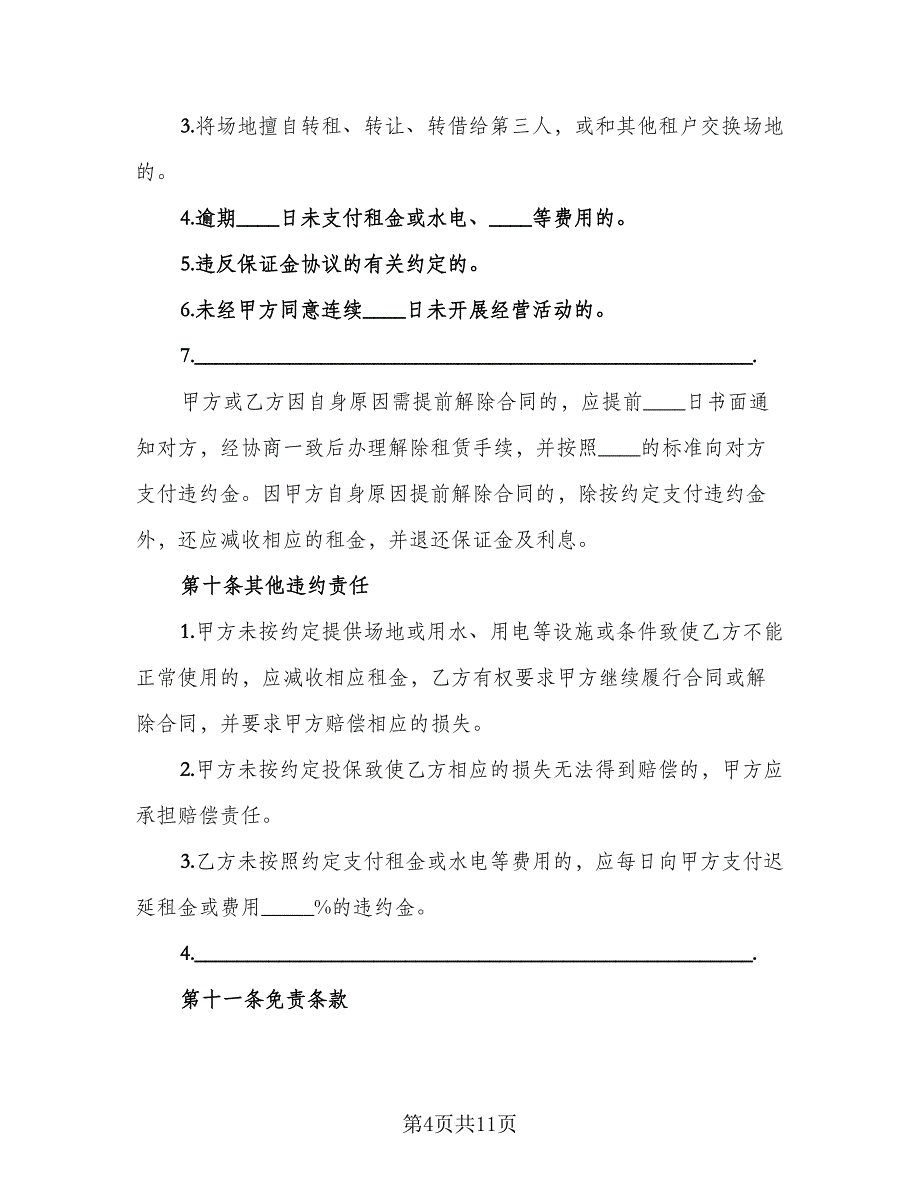 3.将场地擅自转租、转让、转借给第三人，或和其他租户交换场地
的。
4.逾期____日未支付租金或水电、____等费用的。
5.违反保证金协议的有关约定的。
6.未经甲方同意连续____日未开展经营活动的。
7._____________________________________________________.
甲方或乙方因自身原因需提前解除合同的，应提前____日书面通
知对方，经协商一致后办理解除租赁手续，并按照____的标准向对方
支付违约金。因甲方自身原因提前解除合同的，除按约定支付违约金
外，还应减收相应的租金，并退还保证金及利息。
第十条其他违约责任
1.甲方未按约定提供场地或用水、用电等设施或条件致使乙方不能
正常使用的，应减收相应租金，乙方有权要求甲方继续履行合同或解
除合同，并要求甲方赔偿相应的损失。
2.甲方未按约定投保致使乙方相应的损失无法得到赔偿的，甲方应
承担赔偿责任。
3.乙方未按照约定支付租金或水电等费用的，应每日向甲方支付迟
延租金或费用_____%的违约金。
4._____________________________________________________.
第十一条免责条款
第4页共11页